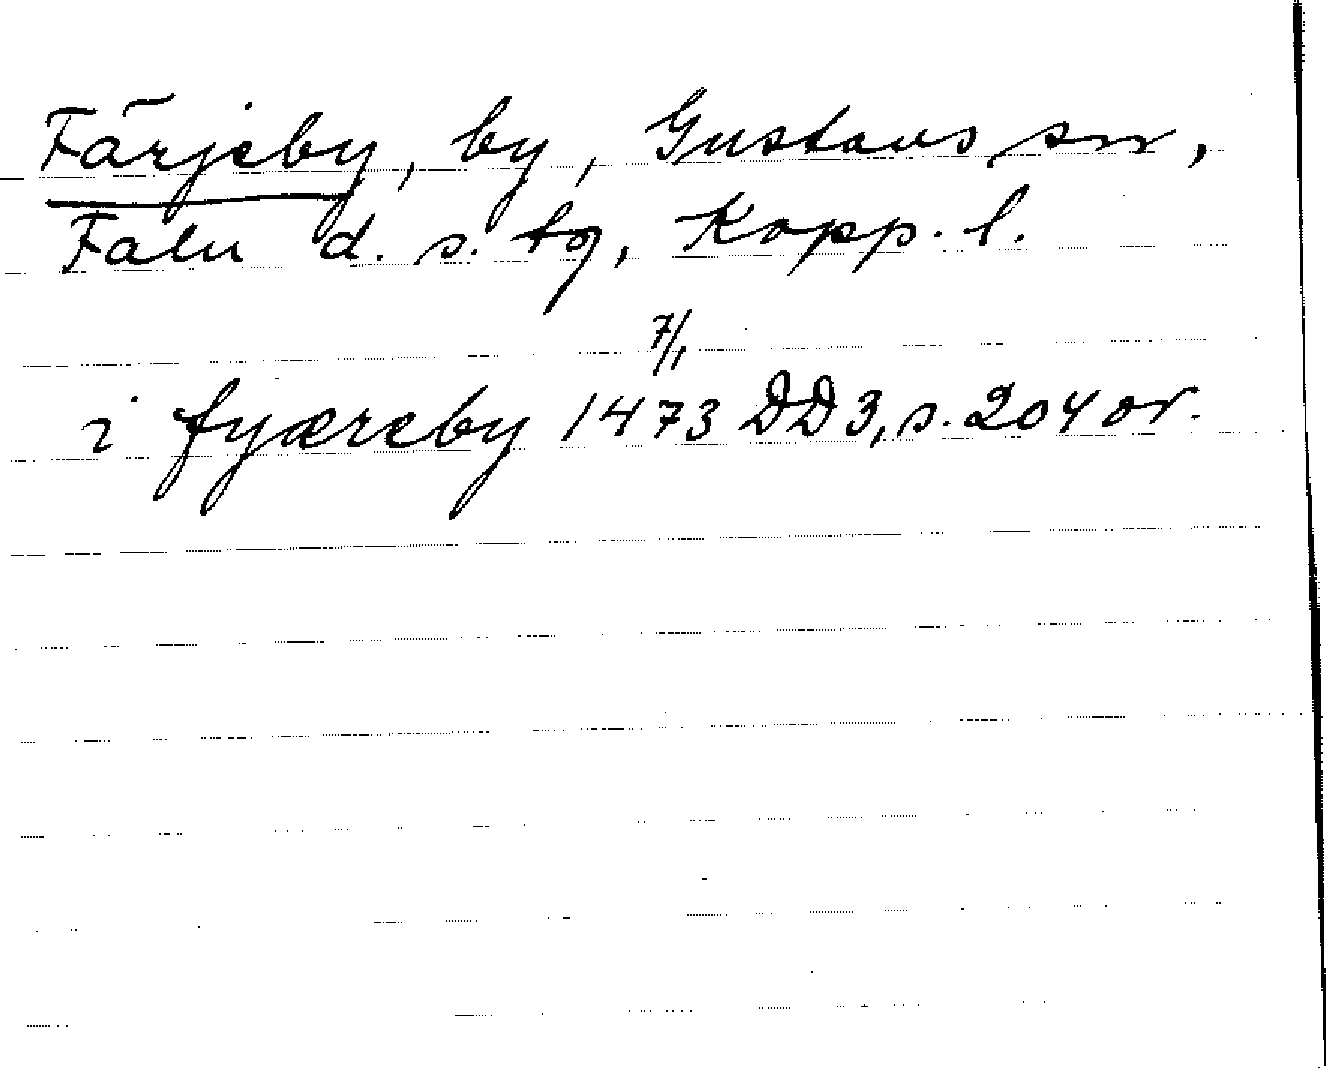 Färjeby, by, Gustavs sn,
Falu d. s. tg, Kopp. l.
7/1
i fyæreby 1473 DD3, s. 204 or.